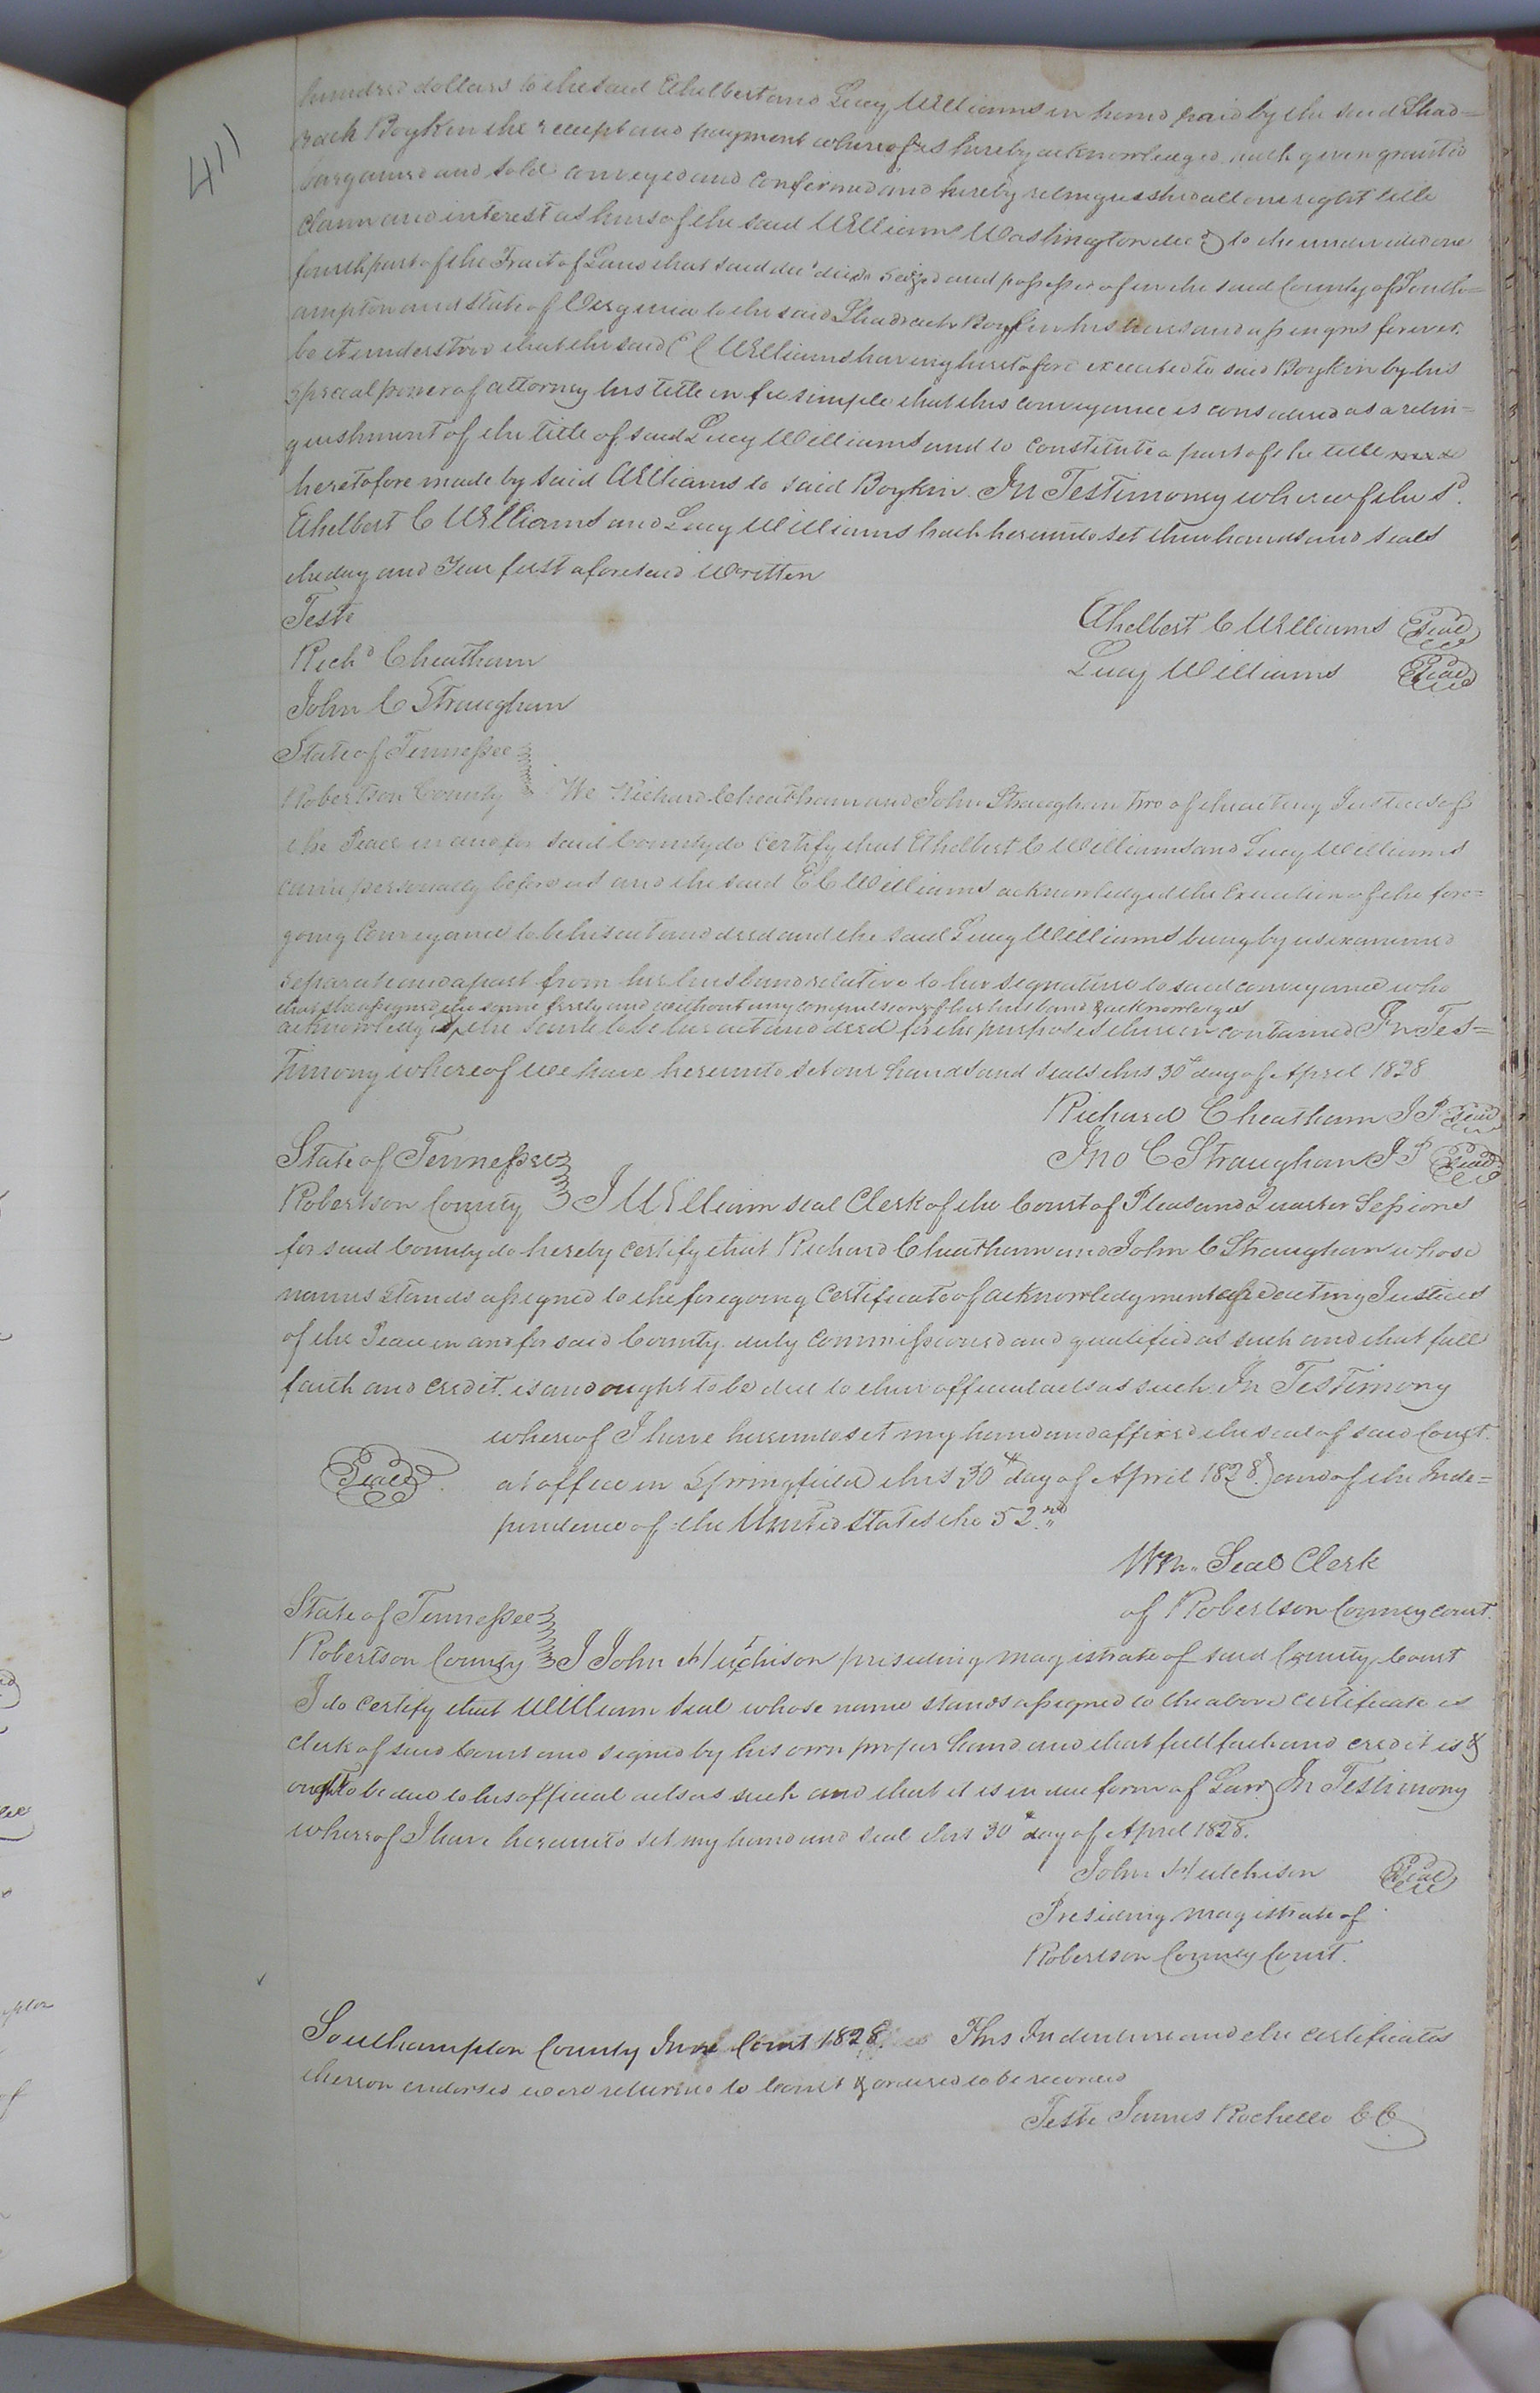 411
hundred dollars to the said Ethelbert and Lucy Williams in hand paid by the said Shad=
rach Boykin the receipt and payment whereof is hereby acknowledged, hath given granted
bargained and sold conveyed and confirmed and hereby relinquished all our right title
claim and interest as heirs of the said William Washington decd to the undivided one
fourth part of the Tract of Land that said decd died seized and possessed of in the said County of South=
ampton and State of Virginia to the said Shadrach Boykin his heirs and assigns forever.
be it understood that the said E C Williams having heretofore executed to said Boykin by his
special power of attorney his title in fee simple that this conveyance is considered as a relin=
quishment of the title of said Lucy Williams and to constitute a part of the title
heretofore made by said Williams to said Boykin. In Testimony whereof the sd.
Ethelbert C Williams and Lucy Williams hath hereunto set their hands and seals
the day and Year first aforesaid Written
Teste
Ethelbert C Williams Seal
Richd Cheatham
Lucy Williams Seal
John C Straughan
State of Tennessee
Robertson County We Richard Cheatham and John Straughan two of the acting Justices of
the Peace in and for said County do certify that Ethelbert C Williams and Lucy Williams
came personally before us and the said E C Williams acknowledged the Execution of the fore=
going Conveyance to be his act and deed and the said Lucy Williams being by us examined
separate and apart from her husband relative to her signature to said conveyance who
that she assigned the same freely and without any compulsion of her husband & acknowledged
acknowledged the same to be her act and deed for the purposes therein contained In Tes=
timony whereof We have hereunto set our hands and seals this 30th day of April 1828
Richard Cheatham J P Seal
State of Tennessee
Jno C Straughan J P Seal
Robertson County I William Seal Clerk of the Court of Pleas and Quarter Sessions
for said County do hereby certify that Richard Cheatham and John C Straughan whose
names stands assigned to the foregoing Certificate of acknowledgment are acting Justices
of the Peace in and for said County duly commissioned and qualified as such and that full
faith and credit is and ought to be due to their official acts as such In Testimony
whereof I have hereunto set my hand and affixed the seal of said Court.
Seal at office in Springfield this 30th day of April 1828. and of the Inde=
pendence of the United States the 52nd
Wm. Seal Clerk
of Robertson County court.
State of Tennessee
Robertson County I John Hutchison presiding magistrate of said County Court
I do certify that William Seal whose name stands assigned to the above certificate is
clerk of said Court and signed by his own proper hand and that full faith and credit is &
ought to be due to his official acts as such and that it is in due form of Law In Testimony
whereof I have hereunto set my hand and seal this 30th day of April 1828.
John Hutchison Seal
Presiding magistrate of
Robertson County Court.
Southampton County June Court 1828. This Indenture and the certificates
thereon endorsed were returned to Court & ordered to be recorded
Teste James Rochelle C C